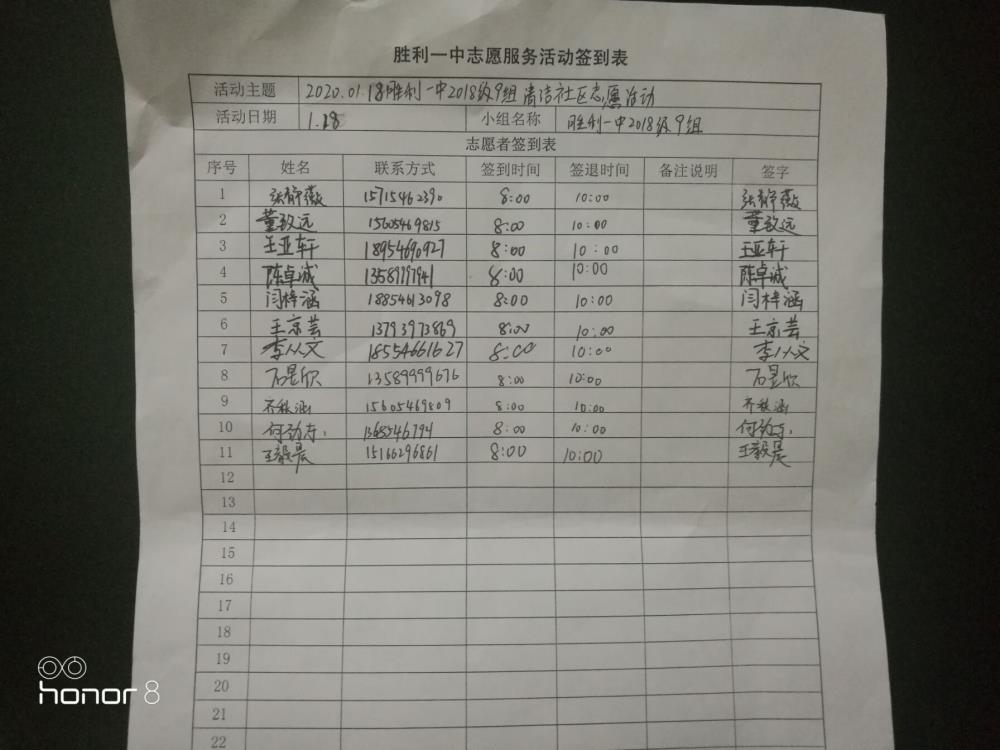 胜利一中志愿服务活动签到表
活动主题 2020.01.18胜利一中2018级9组清洁社区志愿活动
活动日期 1.18 小组名称 胜利一中2018级9组
志愿者签到表
序号 姓名 联系方式 签到时间 签退时间 备注说明 签字
1 张静薇 15715462390 8:00 10:00 张静薇
2 董致远 15605469815 8:00 10:00 董致远
3 王亚轩 18954690927 8:00 10:00 王亚轩
4 陈卓诚 8:00 10:00 陈卓诚
5 闫梓涵 18854613098 8:00 10:00 闫梓涵
6 王京芸 13793973869 8:00 10:00 王京芸
7 李从文 18554661627 8:00 10:00 李从文
8 石昱欣 13589999676 8:00 10:00 石昱欣
9 齐秩涵 15605469809 8:00 10:00 齐秩涵
10 8:00 10:00
11 王毅晨 15166296861 8:00 10:00 王毅晨
12
13
14
15
16
17
18
19
20
21
22
honor 8